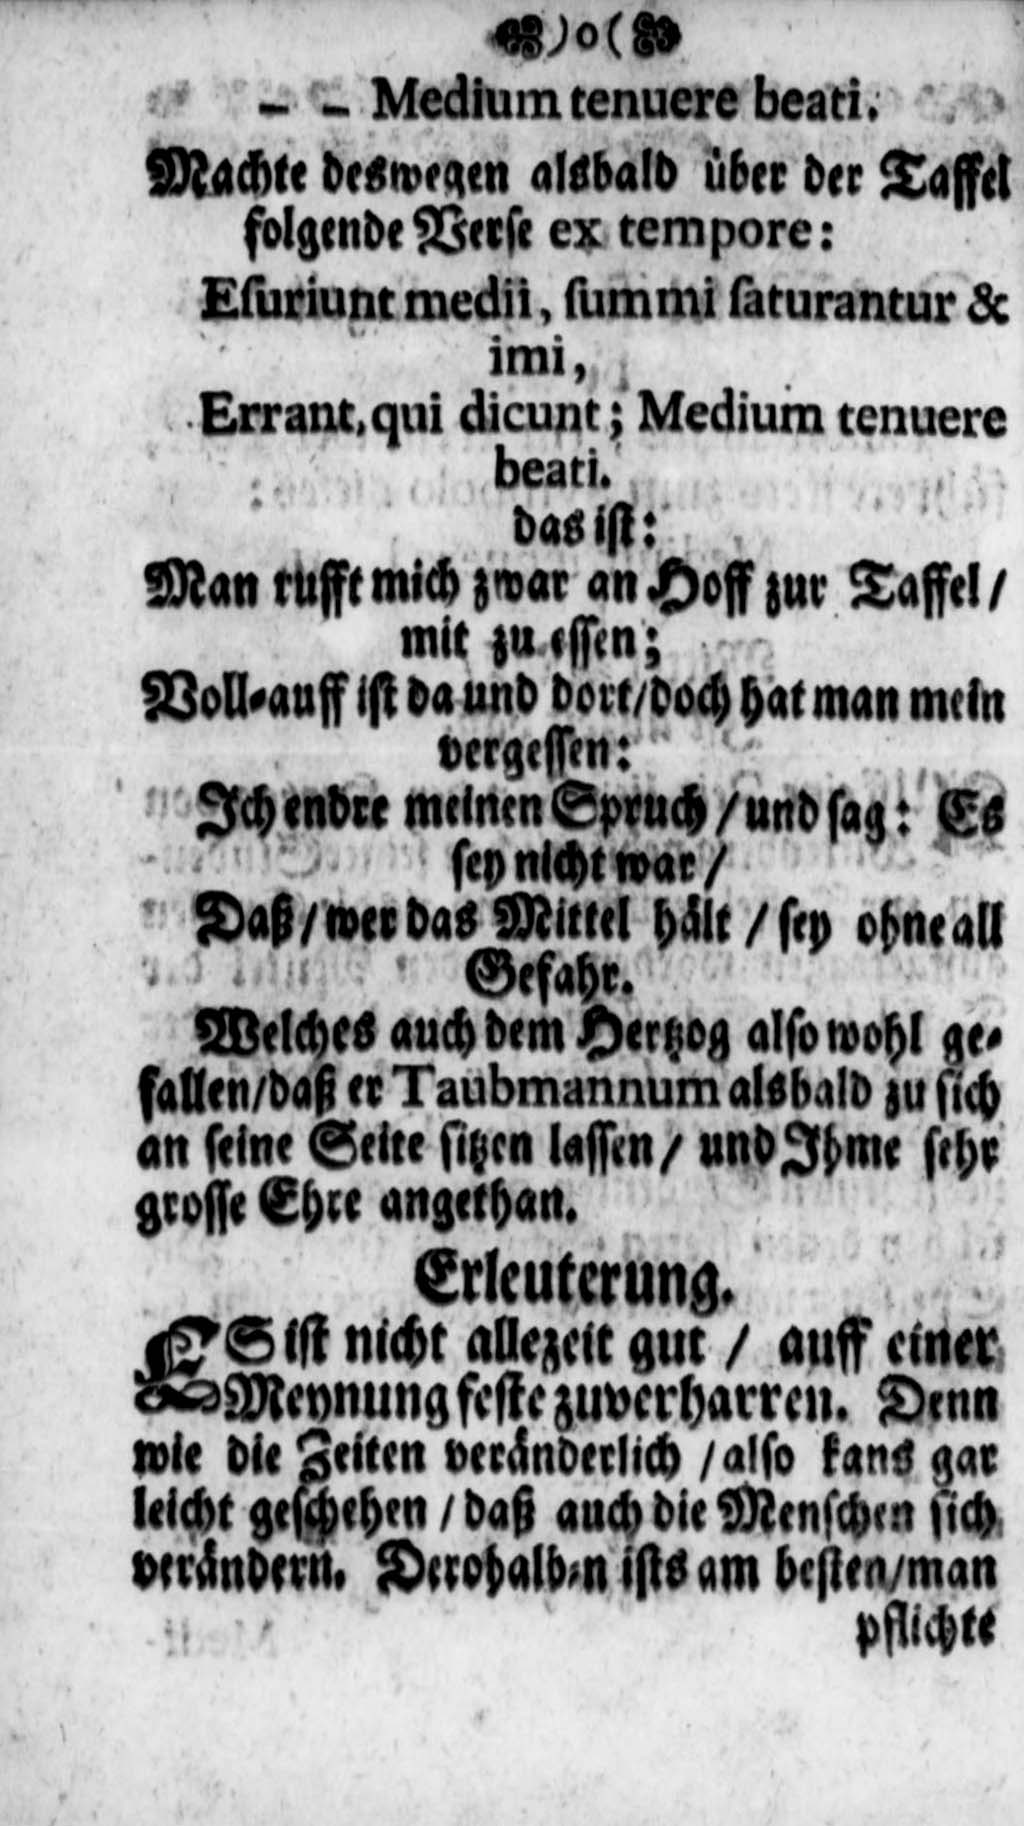 )o(
– – Medium tenuere beati.
Machte deswegen alsbald uͤber der Taffel
folgende Verſe ex tempore:
Eſuriunt medii, ſummi ſaturantur &
imi,
Errant, qui dicunt; Medium tenuere
beati.
das iſt:
Man rufft mich zwar an Hoff zur Taffel/
mit zu eſſen;
Voll-auff iſt da und dort/doch hat man mein
vergeſſen:
Ich endre meinen Spruch/und ſag: Es
ſey nicht war/
Daß/wer das Mittel haͤlt/ſey ohne all
Gefahr.
Welches auch dem Hertzog alſo wohl ge-
fallen/daß er Taubmannum alsbald zu ſich
an ſeine Seite ſitzen laſſen/und Ihme ſehr
groſſe Ehre angethan.
Erleuterung.
ES iſt nicht allezeit gut/auff einer
Meynung feſte zuverharren. Denn
wie die Zeiten veraͤnderlich/alſo kans gar
leicht geſchehen/daß auch die Menſchen ſich
veraͤndern. Derohalben iſts am beſten/man
pflichte